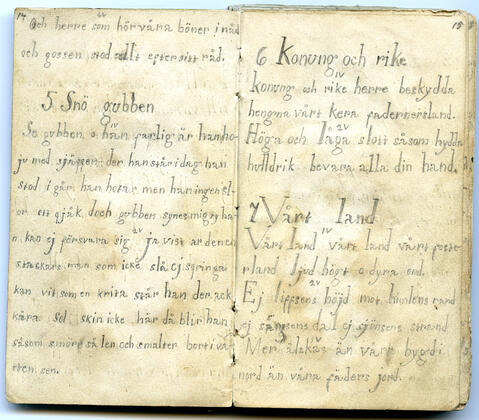 14
Och herre som hör våra böner i nåd
och gossen stod allt efter sitt råd.
5 Snö gubben
Se gubben o han farlig är han ho
ju med snäppen der han står i dag han
stod i går, han hotar men har ingen sl
or ett qjäk doch gubben synes mig th
n kan ej försvara sig ja vist ar den en
stackars man som icke slå ej springa
kan vit som en krita står han der ack
kära sol skin icke här då blir han
såsom smörr så len och smalter bort i va
tten sen.
15
6 Konung och rike
IV
Konung och rike herre beskydda
hengna vårt kera fadernersland.
2V
Höga och låga slott såsom hydda
huldrik bevara alla din hand.
7 Vårt land
IV
Vårt land vårt land vårt foste
rland ljud högt o dyra ord.
2V
Ej lipfsens höjd mot himlens rand
ej sänsens dal ej sjönsens strand
3
Mer älskas än vårr bygd i
nord än våra fäders jord.